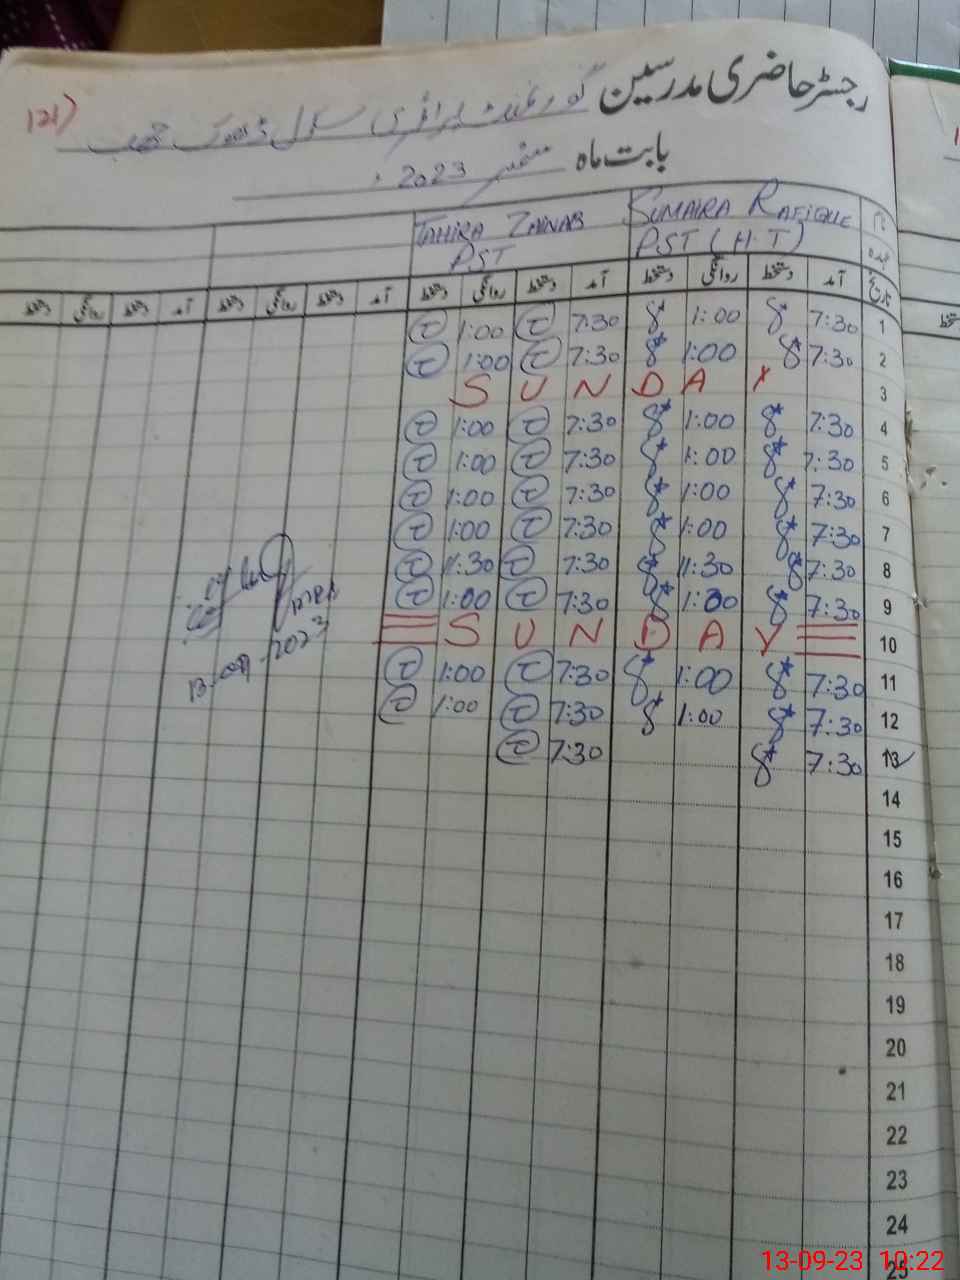 رجسٹر حاضری مدرسین گورنمنٹ پرائمری سکول ڈھوک
121)
بابت ماہ ستمبر 2023ء
نام SUMAIRA RAFIQUE TAHIRA ZAINAB
عہدہ PST (H.T) PST
تاریخ آمد دستخط روانگی دستخط آمد دستخط روانگی دستخط آمد دستخط روانگی دستخط آمد دستخط روانگی دستخط
1 7:30 1:00 7:30 1:00
2 7:30 1:00 7:30 1:00
3 SUNDAY
4 7:30 1:00 7:30 1:00
5 7:30 1:00 7:30 1:00
6 7:30 1:00 7:30 1:00
7 7:30 1:00 7:30 1:00
8 7:30 11:30 7:30 11:30
9 7:30 1:00 7:30 1:00
10 SUNDAY
11 7:30 1:00 7:30 1:00
12 7:30 1:00 7:30 1:00
13 7:30 7:30
14
15
16
17
18
19
20
21
22
23
24
25
2023
13-09-23 10:22